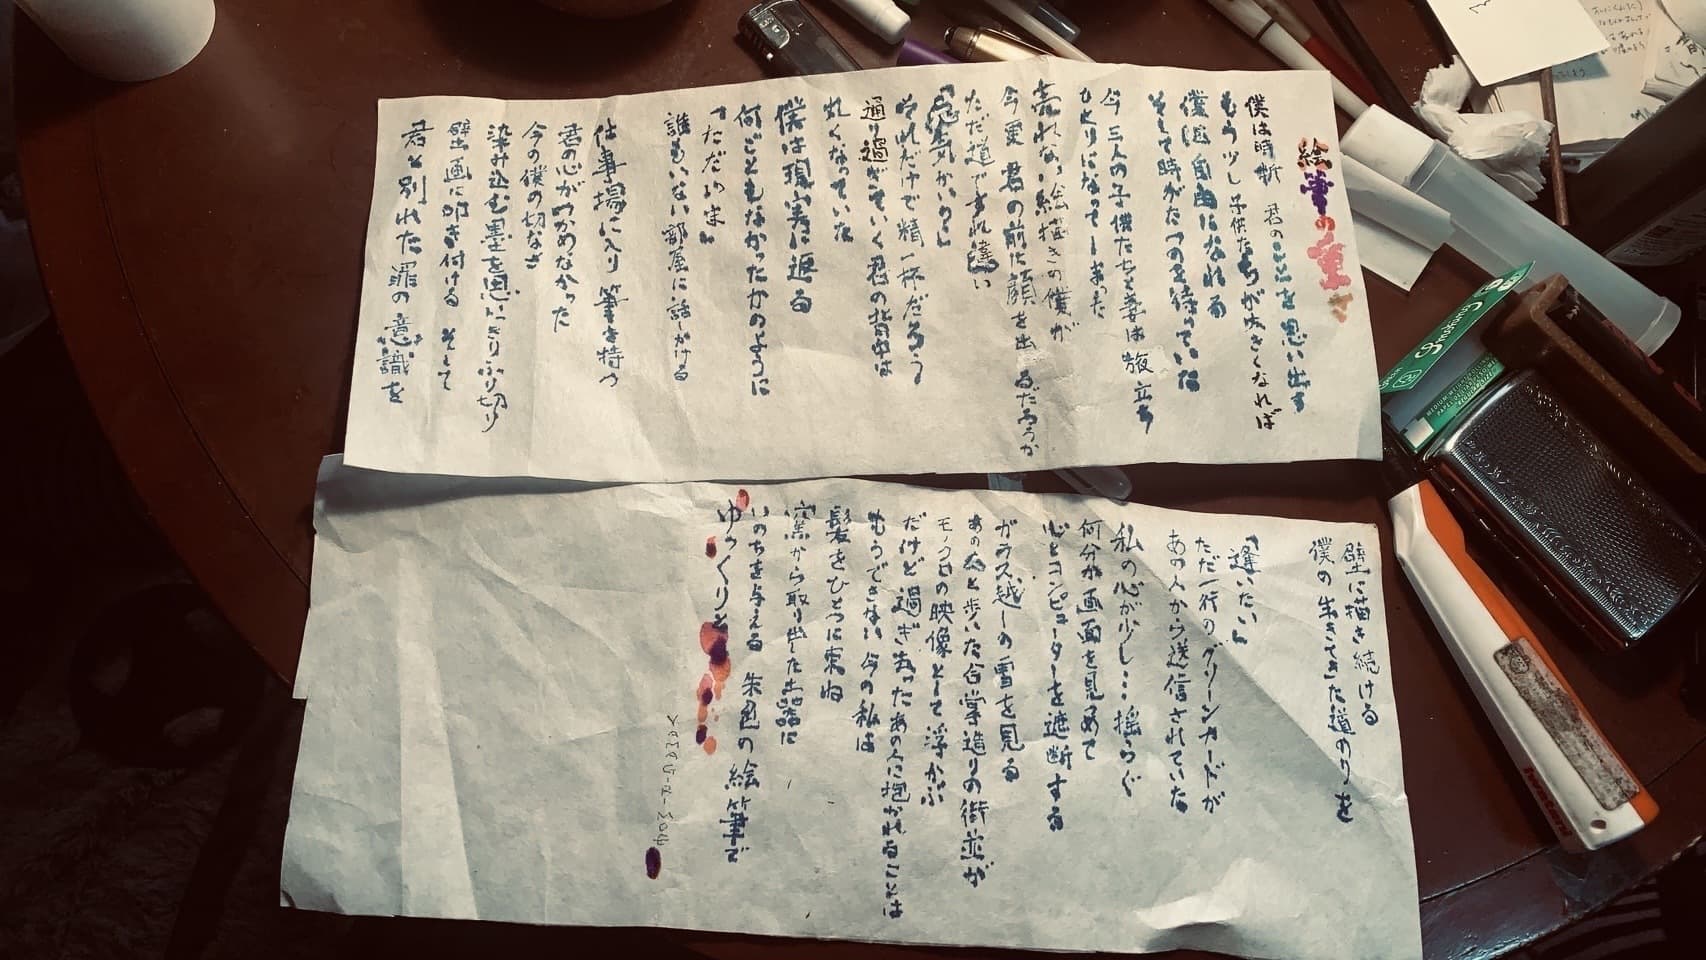 絵筆の重さ
僕は時折 君のことを思い出す
もう少し 子供たちが大きくなれば
僕は自由になれる
そして時がたつのを待っていた
今 三人の子供たちと妻は旅立ち
ひとりになってしまった
売れない絵描きの僕が
今更 君の前に顔を出せるだろうか
ただ道ですれ違い
「元気かい?」
それだけで精一杯だろう
通り過ぎていく君の背中は
丸くなっていた
僕は現実に返る
何ごともなかったかのように
「ただいま」
誰もいない部屋に話しかける
仕事場に入り 筆を持つ
君の心がつかめなかった
今の僕の切なさ
染み込む墨を思いきりふり切り
壁画に叩き付ける そして
君と別れた罪の意識を
壁に描き続ける
僕の生きてきた道のりを
「逢いたい」
ただ一行のグリーンカードが
あの人から送信されていた
私の心が少し…揺らぐ
何分か画面を見つめて
心とコンピューターを遮断する
ガラス越しの雪を見る
あの人と歩いた合掌造りの街並が
モノクロの映像として浮かぶ
だけど過ぎ去ったあの人に抱かれることは
もうできない 今の私は
髪をひとつに束ね
窯から取り出した土器に
いのちを与える 朱色の絵筆で
ゆっくりと
Smoking